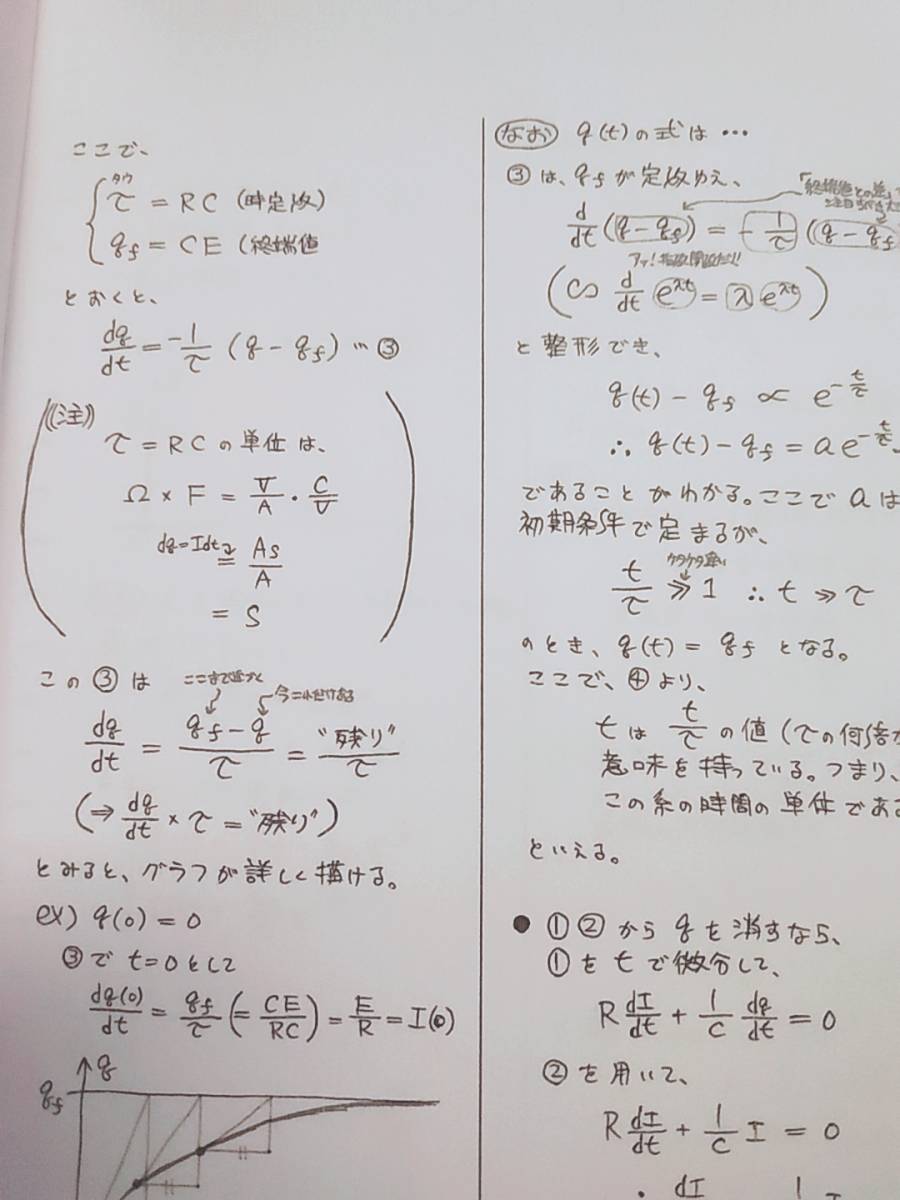 ここで、
タウ
τ = RC (時定数)
q_f = CE (終端値
とおくと、
dq/dt = -1/τ (q - q_f) … ③
((注))
τ = RC の単位は、
Ω × F = V/A · C/V
dq = Idt ≅ As/A
= S
この ③ は
ここまで近づく
今これだけある
dq/dt = (q_f - q)/τ = "残り"/τ
(⇒ dq/dt × τ = "残り")
とみると、グラフが詳しく描ける。
ex) q(0) = 0
③で t=0 として
dq(0)/dt = q_f/τ (= CE/RC) = E/R = I(0)
q
q_f
なお q(t) の式は …
③ は、q_f が定数ゆえ、
「終端値との差」
d/dt (q - q_f) = - 1/τ (q - q_f
アッ!指数関数だ!!
(∽ d/dt e^{λt} = λ e^{λt})
と整形でき、
q(t) - q_f ∝ e^{-t/τ}
∴ q(t) - q_f = a e^{-t/τ}
であることがわかる。ここで a は
初期条件で定まるが、
ケタケタ違い
t/τ ≫ 1 ∴ t ≫ τ
のとき、q(t) = q_f となる。
ここで、④ より、
t は t/τ の値 (τ の何倍か
意味を持っている。つまり、
この系の時間の単体である
といえる。
● ① ② から q を消すなら、
① を t で微分して、
R dI/dt + 1/C dq/dt = 0
② を用いて、
R dI/dt + 1/C I = 0